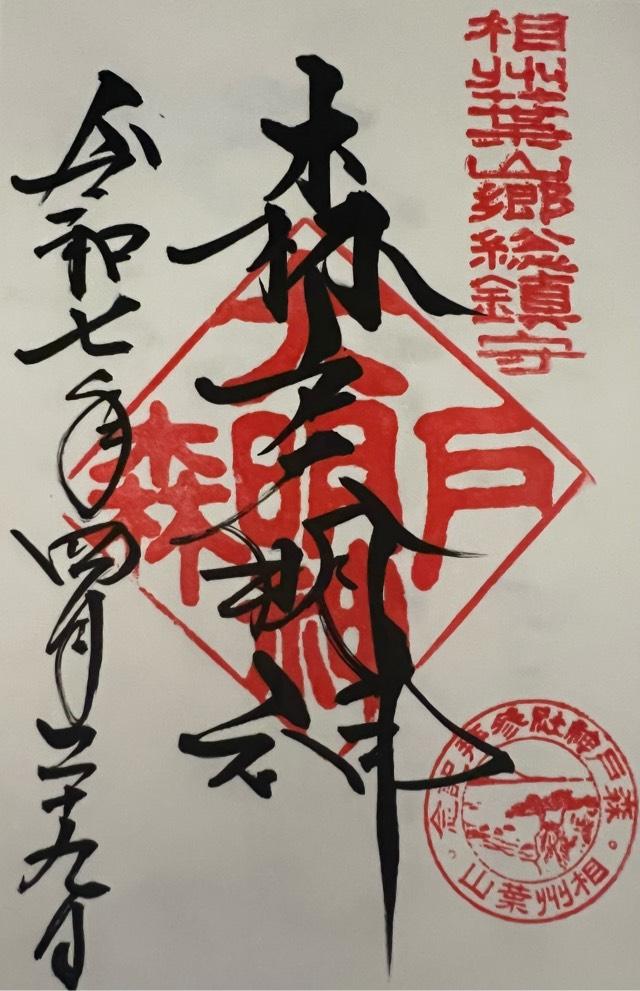 相州葉山郷総鎮守
森戸大明神
戸
大明神
森
森戸神社参拝記念。
相州葉山
令和七年四月二十九日